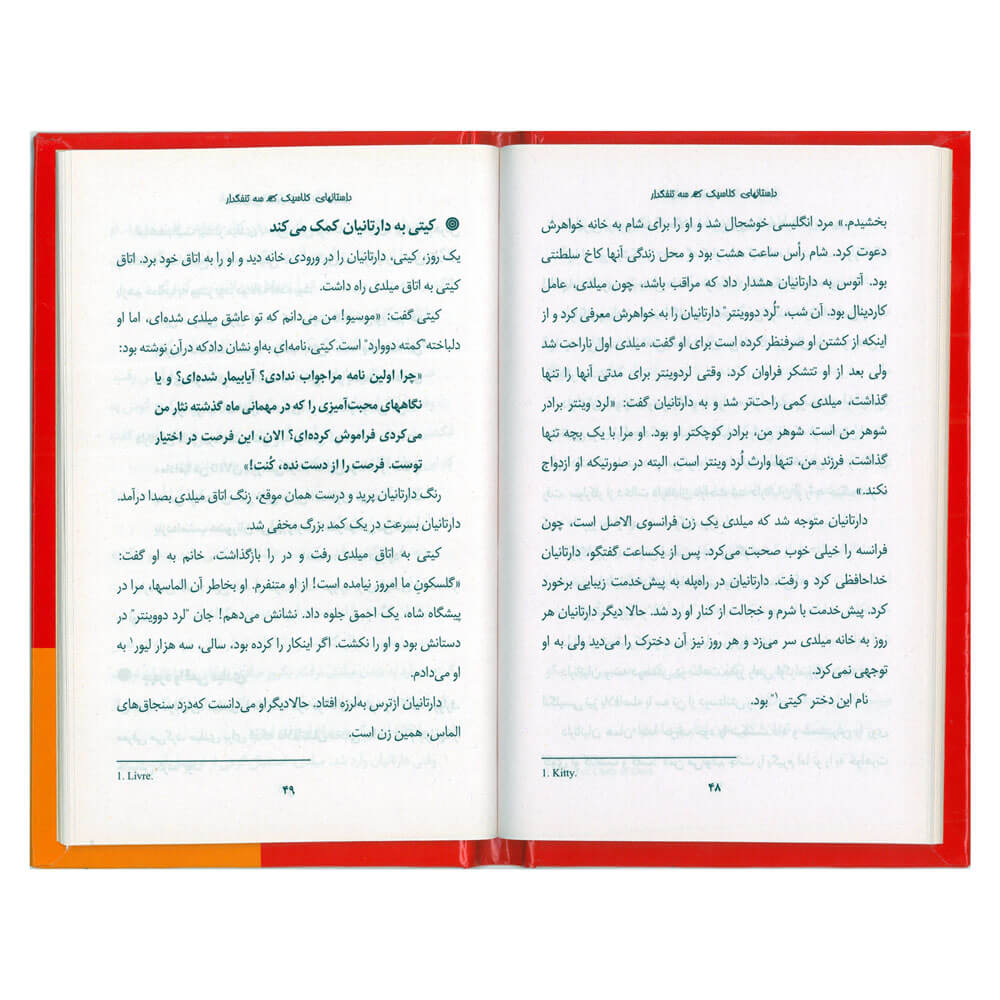 داستانهای کلاسیک سه تفنگدار
بخشیدم.» مرد انگلیسی خوشحال شد و او را برای شام به خانه خواهرش
دعوت کرد. شام رأس ساعت هشت بود و محل زندگی آنها کاخ سلطنتی
بود. آتوس به دارتانیان هشدار داد که مراقب باشد، چون میلدی، عامل
کاردینال بود. آن شب، "لُرد دووینتر" دارتانیان را به خواهرش معرفی کرد و از
اینکه از کشتن او صرفنظر کرده است برای او گفت. میلدی اول ناراحت شد
ولی بعد از او تتشکر فراوان کرد. وقتی لردوینتر برای مدتی آنها را تنها
گذاشت، میلدی کمی راحت‌تر شد و به دارتانیان گفت: «لرد وینتر برادر
شوهر من است. شوهر من، برادر کوچکتر او بود. او مرا با یک بچه تنها
گذاشت. فرزند من، تنها وارث لُرد وینتر است، البته در صورتیکه او ازدواج
نکند.»
دارتانیان متوجه شد که میلدی یک زن فرانسوی الاصل است، چون
فرانسه را خیلی خوب صحبت می‌کرد. پس از یکساعت گفتگو، دارتانیان
خداحافظی کرد و رفت. دارتانیان در راه‌پله به پیش‌خدمت زیبایی برخورد
کرد. پیش‌خدمت با شرم و خجالت از کنار او رد شد. حالا دیگر دارتانیان هر
روز به خانه میلدی سر می‌زد و هر روز نیز آن دخترک را می‌دید ولی به او
توجهی نمی‌کرد.
نام این دختر "کیتی۱" بود.
1. Kitty.
۴۸
داستانهای کلاسیک سه تفنگدار
کیتی به دارتانیان کمک می‌کند
یک روز، کیتی، دارتانیان را در ورودی خانه دید و او را به اتاق خود برد. اتاق
کیتی به اتاق میلدی راه داشت.
کیتی گفت: «موسیو! من می‌دانم که تو عاشق میلدی شده‌ای، اما او
دلباخته "کمته دووارد" است. کیتی، نامه‌ای به‌او نشان دادکه درآن نوشته بود:
«چرا اولین نامه مراجواب ندادی؟ آیابیمار شده‌ای؟ و یا
نگاههای محبت‌آمیزی را که در مهمانی ماه گذشته نثار من
می‌کردی فراموش کرده‌ای؟ الان، این فرصت در اختیار
توست. فرصت را از دست نده، کُنت!»
رنگ دارتانیان پرید و درست همان موقع، زنگ اتاق میلدی بصدا درآمد.
دارتانیان بسرعت در یک کمد بزرگ مخفی شد.
کیتی به اتاق میلدی رفت و در را بازگذاشت، خانم به او گفت:
«گلسکونِ ما امروز نیامده است! از او متنفرم. او بخاطر آن الماسها، مرا در
پیشگاه شاه، یک احمق جلوه داد. نشانش می‌دهم! جان "لرد دووینتر" در
دستانش بود و او را نکشت. اگر اینکار را کرده بود، سالی، سه هزار لیور۱ به
او می‌دادم.
دارتانیان ازترس به‌لرزه افتاد. حالادیگراو می‌دانست که‌دزد سنجاق‌های
الماس، همین زن است.
1. Livre.
۴۹